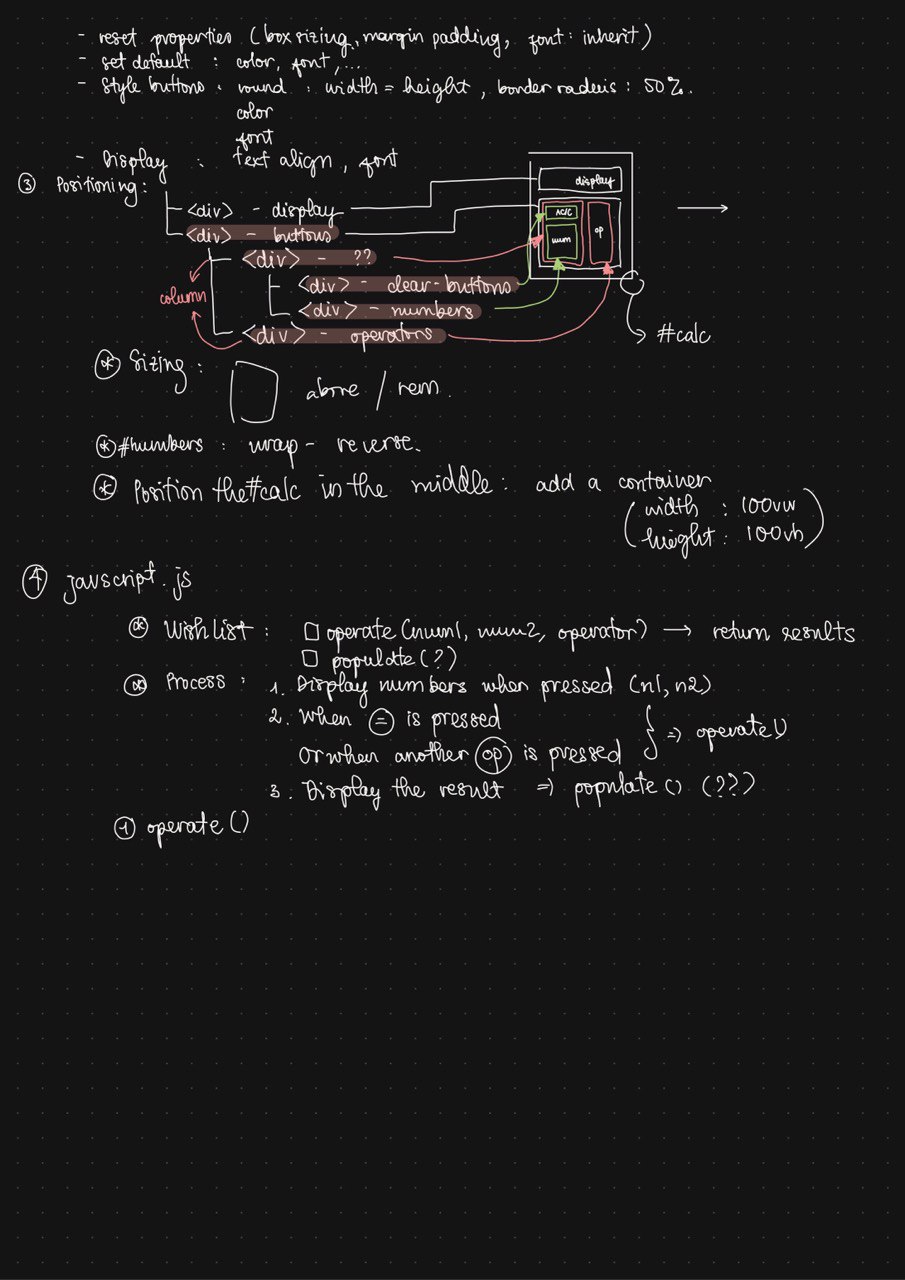 - reset properties (box sizing, margin padding, font: inherit)
- set default : color, font, ...
- Style buttons : round : width = height, border radius : 50%.
color
font
- Display : text align, font
③ Positioning :
display
<div> - display
<div> - buttons
AC/C
num
op
<div> - ??
column
<div> - clear-buttons
<div> - numbers
<div> - operators
#calc
* Sizing : above / rem.
* #numbers : wrap - reverse.
* Position the #calc in the middle : add a container
(width : 100vw
height : 100vh)
④ javscript.js
* Wish list : □ operate (num1, num2, operator) → return results
□ populate (?)
* Process : 1. Display numbers when pressed (n1, n2)
2. When = is pressed
Or when another op is pressed } => operate()
3. Display the result => populate () (??)
① operate ()